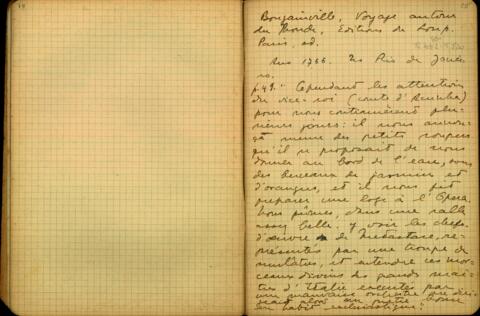 Bougainville, Voyage autour
du Monde, Editions du Loup.
Paris, ed.
Ano 1766. No Rio de Janei-
ro.
p.49. "Cependant les attentions
du vice-roi (comte d'Acunha)
pour nous continuèrent plu-
sieurs jours: il nous annon-
ça même des petits soupers
qu'il se proposait de nous
donner au bord de l'eau, sous
des berceaux de jasmins et
d'orangers, et il nous fit
préparer une loge à l'Opéra.
Nous pûmes, dans une salle
assez belle, y voir les chefs-
d'œuvre de Metastase, re-
présentés par une troupe de
mulâtres, et entendre ces mor-
ceaux divins des grands maî-
tres d'Italie executés par
une mauvaise orchestre que diri-
geait alors un prêtre bossu
en habit ecclesiastique."